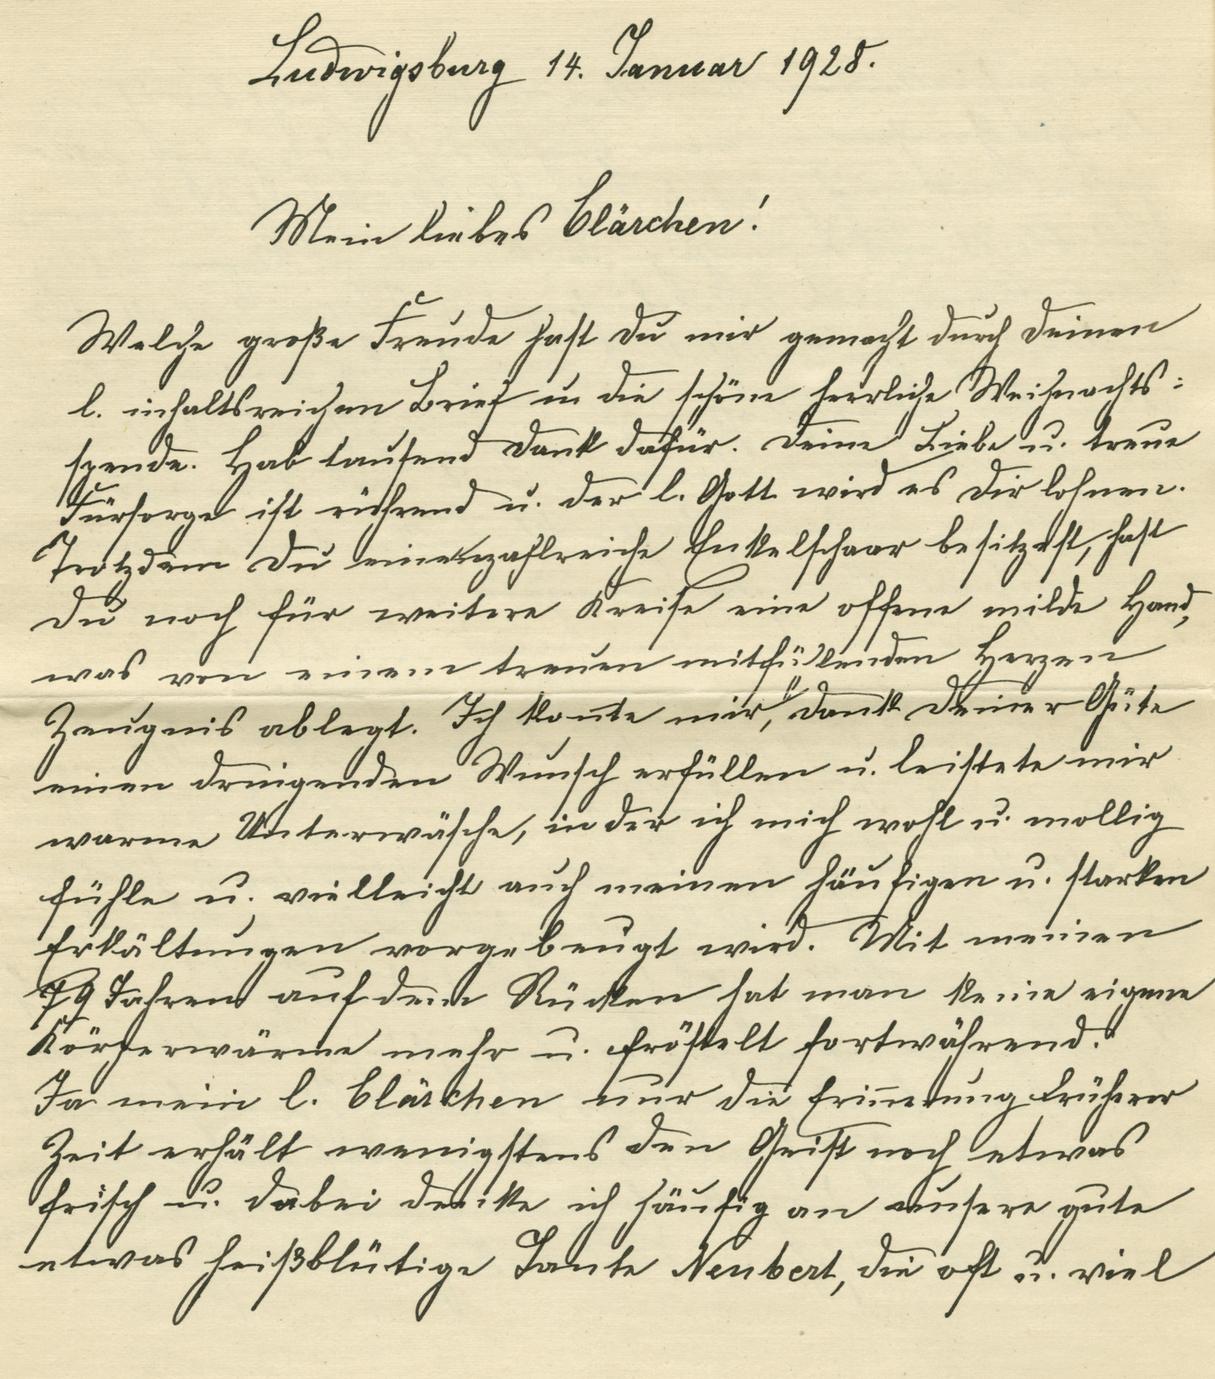 Ludwigsburg 14. Januar 1928.
Mein liebes Clärchen!
Welche große Freude hast Du mir gemacht durch Deinen
l. inhaltsreichen Brief u die schöne herrliche Weihnachts:
spende. Hab tausend Dank dafür. Deine Liebe u. treue
Fürsorge ist rührend u. der l. Gott wird es Dir lohnen.
Trotzdem Du eine zahlreiche Enkelschaar besitzest, hast
Du noch für weitere Kreise eine offene milde Hand,
was von einem treuen mitfühlenden Herzen
Zeugnis ablegt. Ich konnte mir, Dank Deiner Güte
einen dringenden Wunsch erfüllen u. leistete mir
warme Unterwäsche, in der ich mich wohl u. mollig
fühle u. vielleicht auch meinen häufigen u. starken
Erkältungen vorgebeugt wird. Mit meinen
79 Jahren auf dem Rücken hat man keine eigene
Körperwärme mehr u. fröstelt fortwährend.
Ja mein l. Clärchen nur die Erinnerung früherer
Zeit erhält wenigstens den Geist noch etwas
frisch u. dabei denke ich häufig an unsere gute
etwas heißblütige Tante Neubert, die oft u. viel